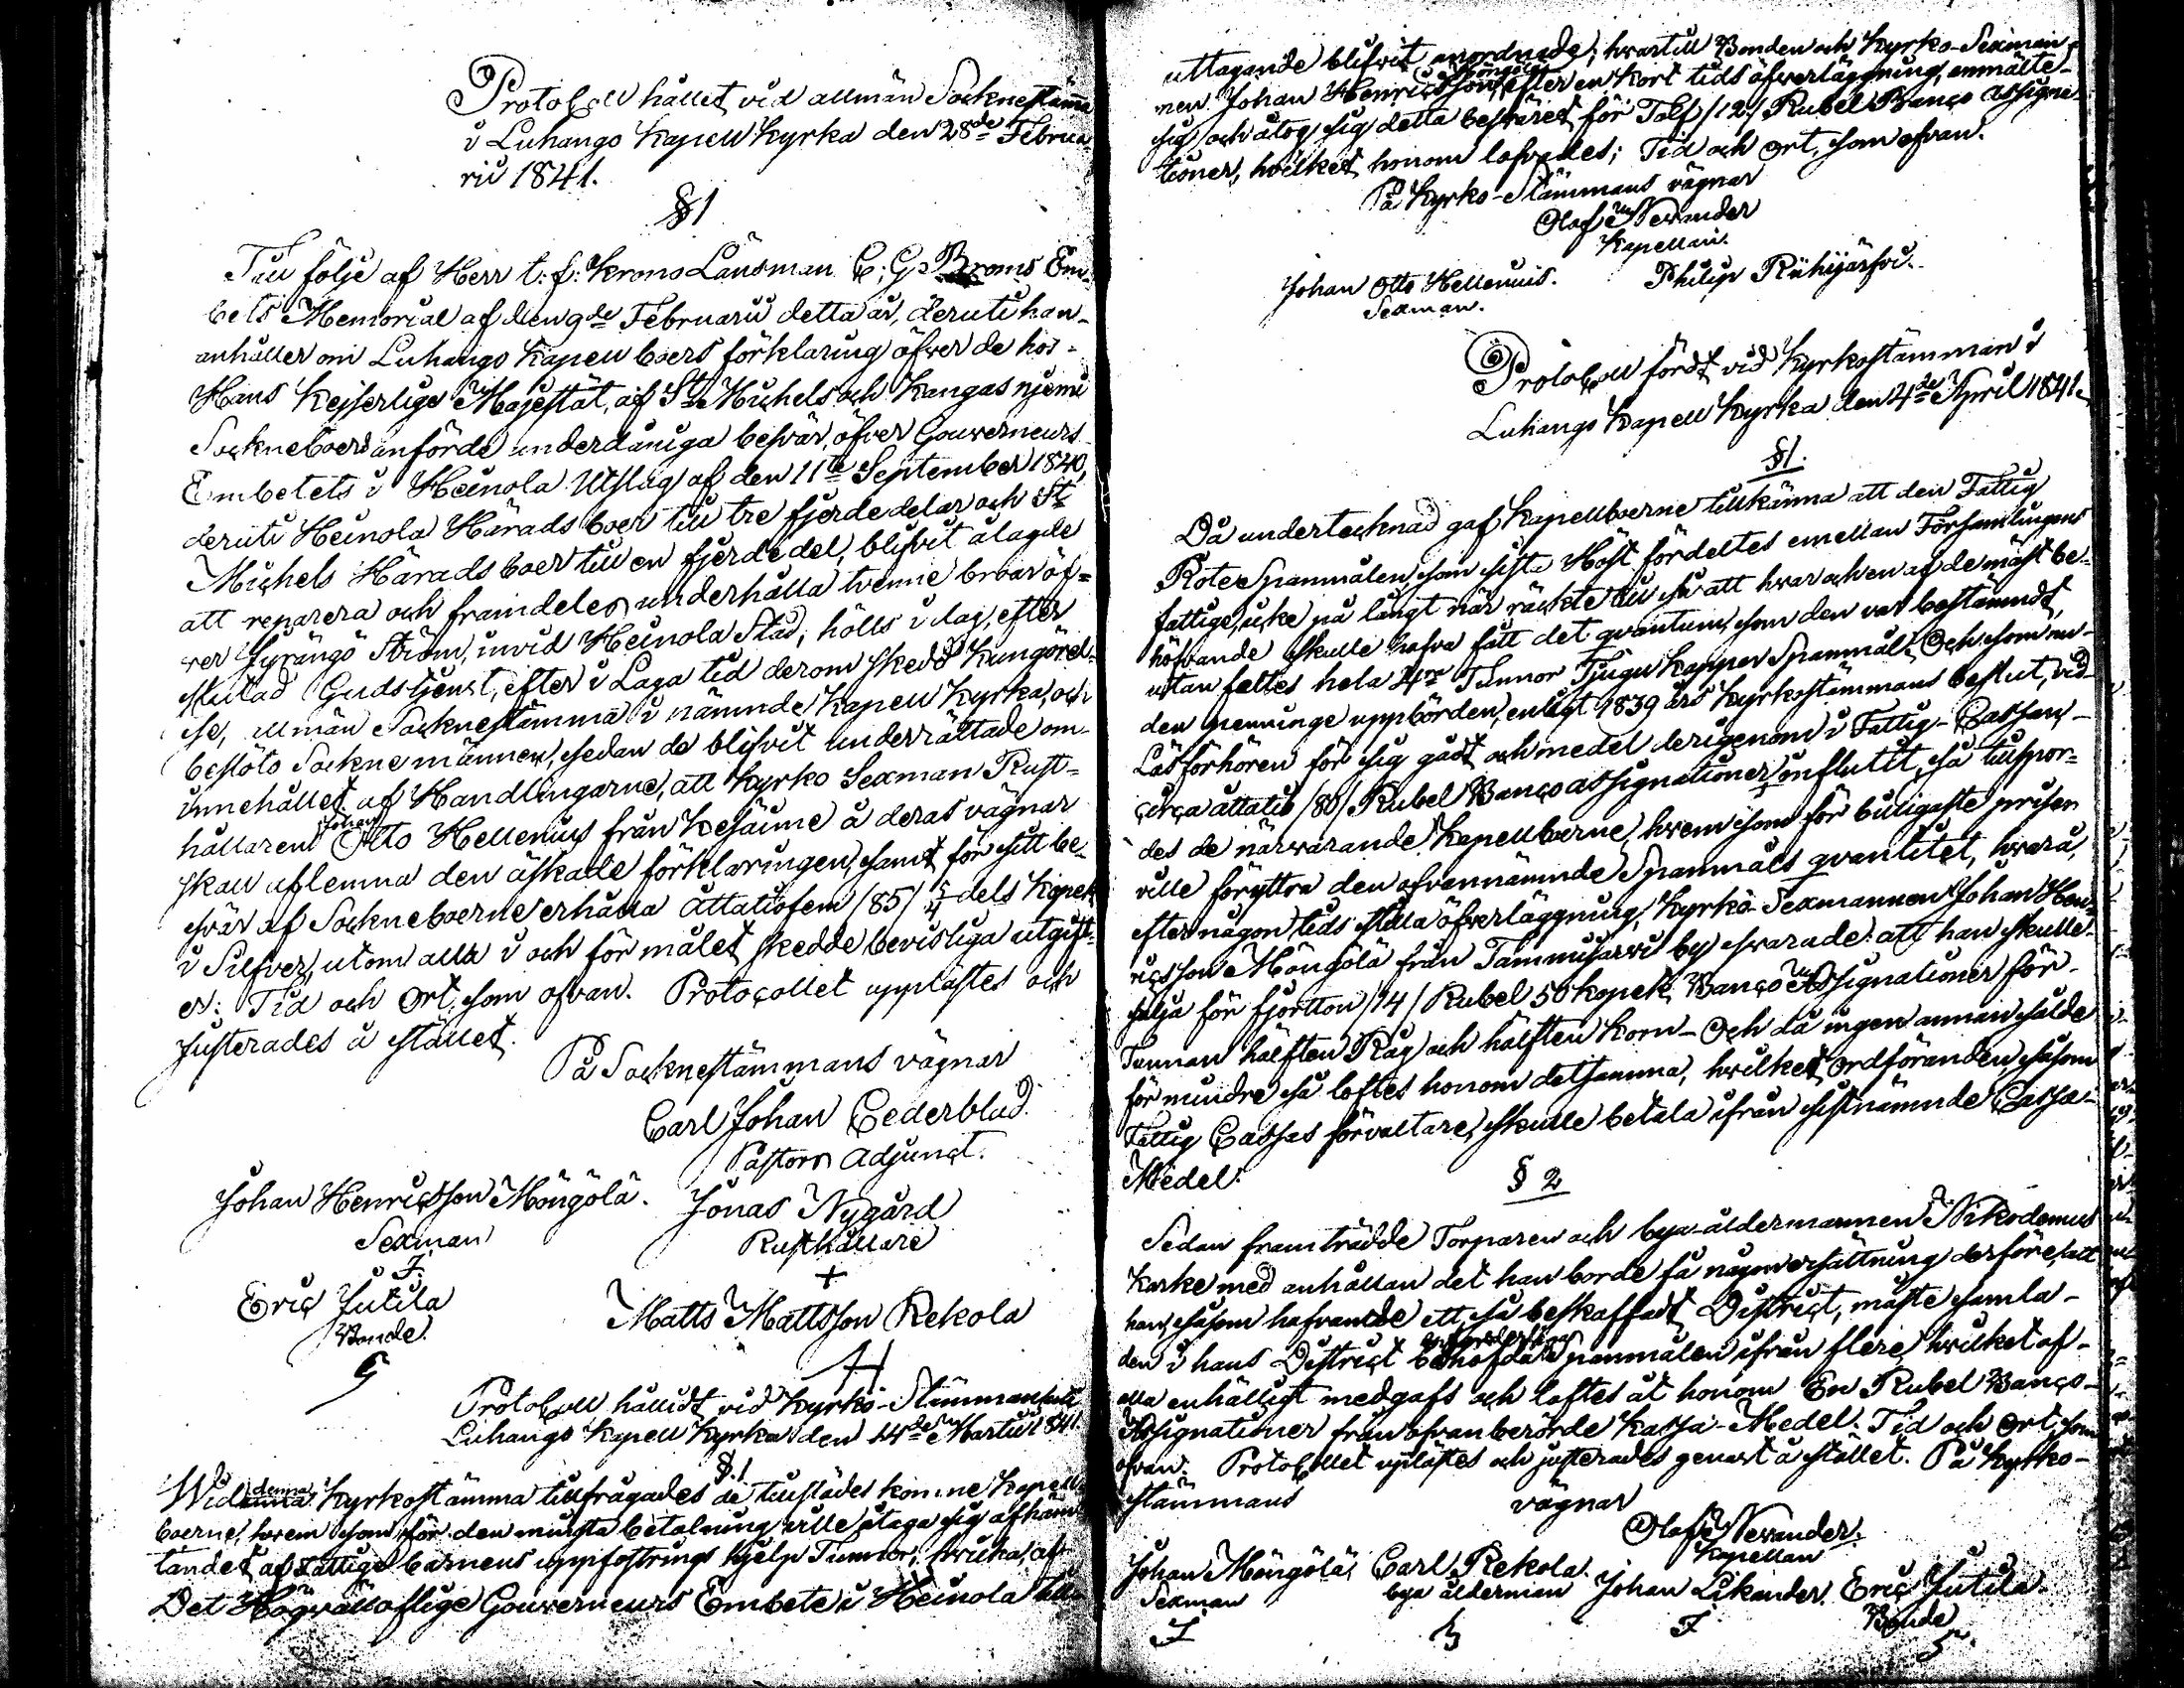 Protocoll hållet vid allmän Socknestämma
i Luhango Kapell Kyrka den 28de Februa-
rii 1841.
§ 1
Till följe af Herr t: f: Krono Länsman C: G: Broms Em-
bets Memorial af den 9de Februarii detta år, deruti han-
anhåller om Luhango Kapell boers förklaring öfver de hos-
Hans Kejserliga Majestät, af St Michels och Kangasnjemi
Sockneboer anförde underdåniga besvär, öfver Gouverneurs
Embetets i Heinola Utslag af den 11te September 1840,
deruti Heinola Härads boer till tre fjerdedelar och St
Michels Härads boer till en fjerdedel, blifvit ålagde
att reparera och framdeles underhålla tvenne broar öf-
ver Jyrängö Ström, invid Heinola Stad; hölls i dag, efter
slutad Gudstjenst, efter i Laga tid derom skedd Kungörel-
se, allmän Socknestämma i nämnde Kapell Kyrka, och
beslöto Sockne männen, sedan de blifvit underrättade om
innehållet af Handlingarne, att Kyrko Sexman Rust-
hållaren Johan Otto Hellenius från Kesäime å deras vägnar
skall aflemna den äskade förklaringen, samt för sitt be-
svär af Sockneboerne erhålla Åttatiofem /85/ 5/4 dels Kopek
i Silfver, utom alla i och för målet skedde bevisliga utgift-
er: Tid och Ort, som ofvan. Protocollet upplästes och
justerades å stället.
På Socknestämmans vägnar
Carl Johan Cederblad.
Pastors Adjunct.
Johan Henricsson Möngölä. Jonas Nygård
Sexman Rusthållare
Eric Jutila Matts Mattsson Rekola
Bonde.
Protocoll hållidt vid Kyrko-Stämman uti
Luhango Kapell Kyrka den 14de Martii 1841.
§. 1
Wid denna Kyrkostämma tillfrågades de tillstädes komne Kapell-
boerne, hvem som för den minsta betalning ville åtaga sig afhäm-
tandet af Fattige barnens uppfostrings hjelp Tunnor, hvilka, af
Det Högvällofliga Gouverneurs Embete i Heinola till
uttagande blifvit anordnade; hvartill Bonden och Kyrko-Sexman-
nen Johan Henricsson Möngölä efter en kort tids öfverläggning, anmälte
sig och åtog sig detta besväret för Tolf /12/ Rubel Banco Assigna-
tioner, hvilket honom lofvades; Tid och Ort, som ofvan.
På Kyrko-Stämmans vägnar
Olof Nevander
Kapellan.
Johan Otto Hellenius. Philip Riihijärfvi.
Sexman.
Protocoll fördt vid Kyrkostämman i
Luhango Kapell Kyrka den 4de April 1841.
§1.
Då undertecknad gaf Kapellboerne tillkänna att den Fattig
Rote Spannmålen, som sista Höst fördeltes emellan Församlingens
fattige, icke på långt när räckte till så att hvar och en af de mäst be-
höfvande skulle hafva fått det qvantum, som den var bestämndt,
utan feltes hela 4ra Tunnor Tjugu Kappar Spannmål. Och som nu-
den penninge uppbörden, enligt 1839 års Kyrkostämmans beslut, vid
Läsförhören för sig gådt och medel derigenom i Fattig-Cassan,
circa åttatio /80/ Rubel Banco assignationer influtit, så tillspor-
des de närvarande Kapellboerne, hvem som för billigaste prisen
ville föryttra den ofvannämnde Spannmåls qvantitet, hvarå,
efter någon tids stilla öfverläggning, Kyrko-Sexmannen Johan Hen-
ricsson Möngölä från Tammijärvi by svarade: att han skulle
sälja för fjortton /14/ Rubel 50 kopek Banco Assignationer för
Tunnan hälften Råg och hälften Korn - Och då ingen annan sålde
för mindre så loftes honom detsamma, hvilket Ordföranden, såsom
Fattig Cassas förvaltare, skulle betala ifrån sistnämnde Cassa-
Medel.
§ 2
Sedan framträdde Torparen och bya-åldermannen Nikodemus
Karke med anhållan det han borde få någon ersättning derföre, att
han, såsom hafvande ett så beskaffadt District, måste samla
den i hans District behöfda Spannmålen ifrån flere, hvilket af
alla enhälligt medgafs och loftes åt honom En Rubel Banco-
Assignationer från ofvanberörde Kassa-Medel. Tid och Ort, som
ofvan. Protocollet uplästes och justerades genast å stället. På Kyrko-
stämmans vägnar
Olof Nevander.
Kapellan
Johan Möngölä, Carl Rekola. Johan Likander. Eric Jutila
Sexman bya ålderman Bonde